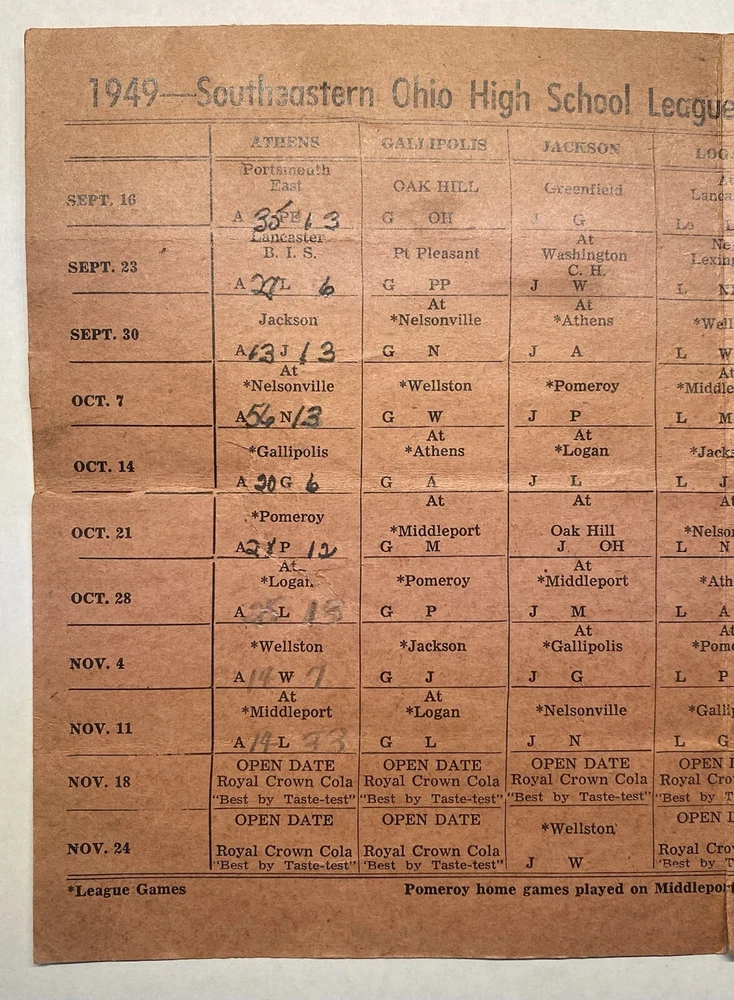 1949—Southeastern Ohio High School League
ATHENS GALLIPOLIS JACKSON LOG
SEPT. 16
Portsmouth
East
A 35 PE 13
OAK HILL
G OH
Greenfield
J G
At
Lanca
Lo L
SEPT. 23
Lancaster
B. I. S.
A 27 L 6
Pt Pleasant
G PP
At
Washington
C. H.
J W
Ne
Lexin
L
SEPT. 30
Jackson
A 13 J 13
At
*Nelsonville
G N
At
*Athens
J A
*Well
L W
OCT. 7
At
*Nelsonville
A 56 N 13
*Wellston
G W
*Pomeroy
J P
At
*Middle
L M
OCT. 14
*Gallipolis
A 20 G 6
At
*Athens
G A
At
*Logan
J L
*Jacks
L J
OCT. 21
*Pomeroy
A P 12
At
*Middleport
G M
At
Oak Hill
J. OH
At
*Nelso
L N
OCT. 28
At
*Logan
A L
*Pomeroy
G P
At
*Middleport
J M
*Ath
L A
NOV. 4
*Wellston
A 14 W 7
*Jackson
G J
At
*Gallipolis
J G
At
*Pome
L P
NOV. 11
At
*Middleport
A 14 L 33
At
*Logan
G L
*Nelsonville
J N
*Galli
L G
NOV. 18
OPEN DATE
Royal Crown Cola
"Best by Taste-test"
OPEN DATE
Royal Crown Cola
"Best by Taste-test"
OPEN DATE
Royal Crown Cola
"Best by Taste-test"
OPEN
Royal Cro
"Best by T
NOV. 24
OPEN DATE
Royal Crown Cola
"Best by Taste-test"
OPEN DATE
Royal Crown Cola
'Best by Taste-test"
*Wellston
J W
OPEN
Royal Cro
'Best by T
*League Games Pomeroy home games played on Middleport